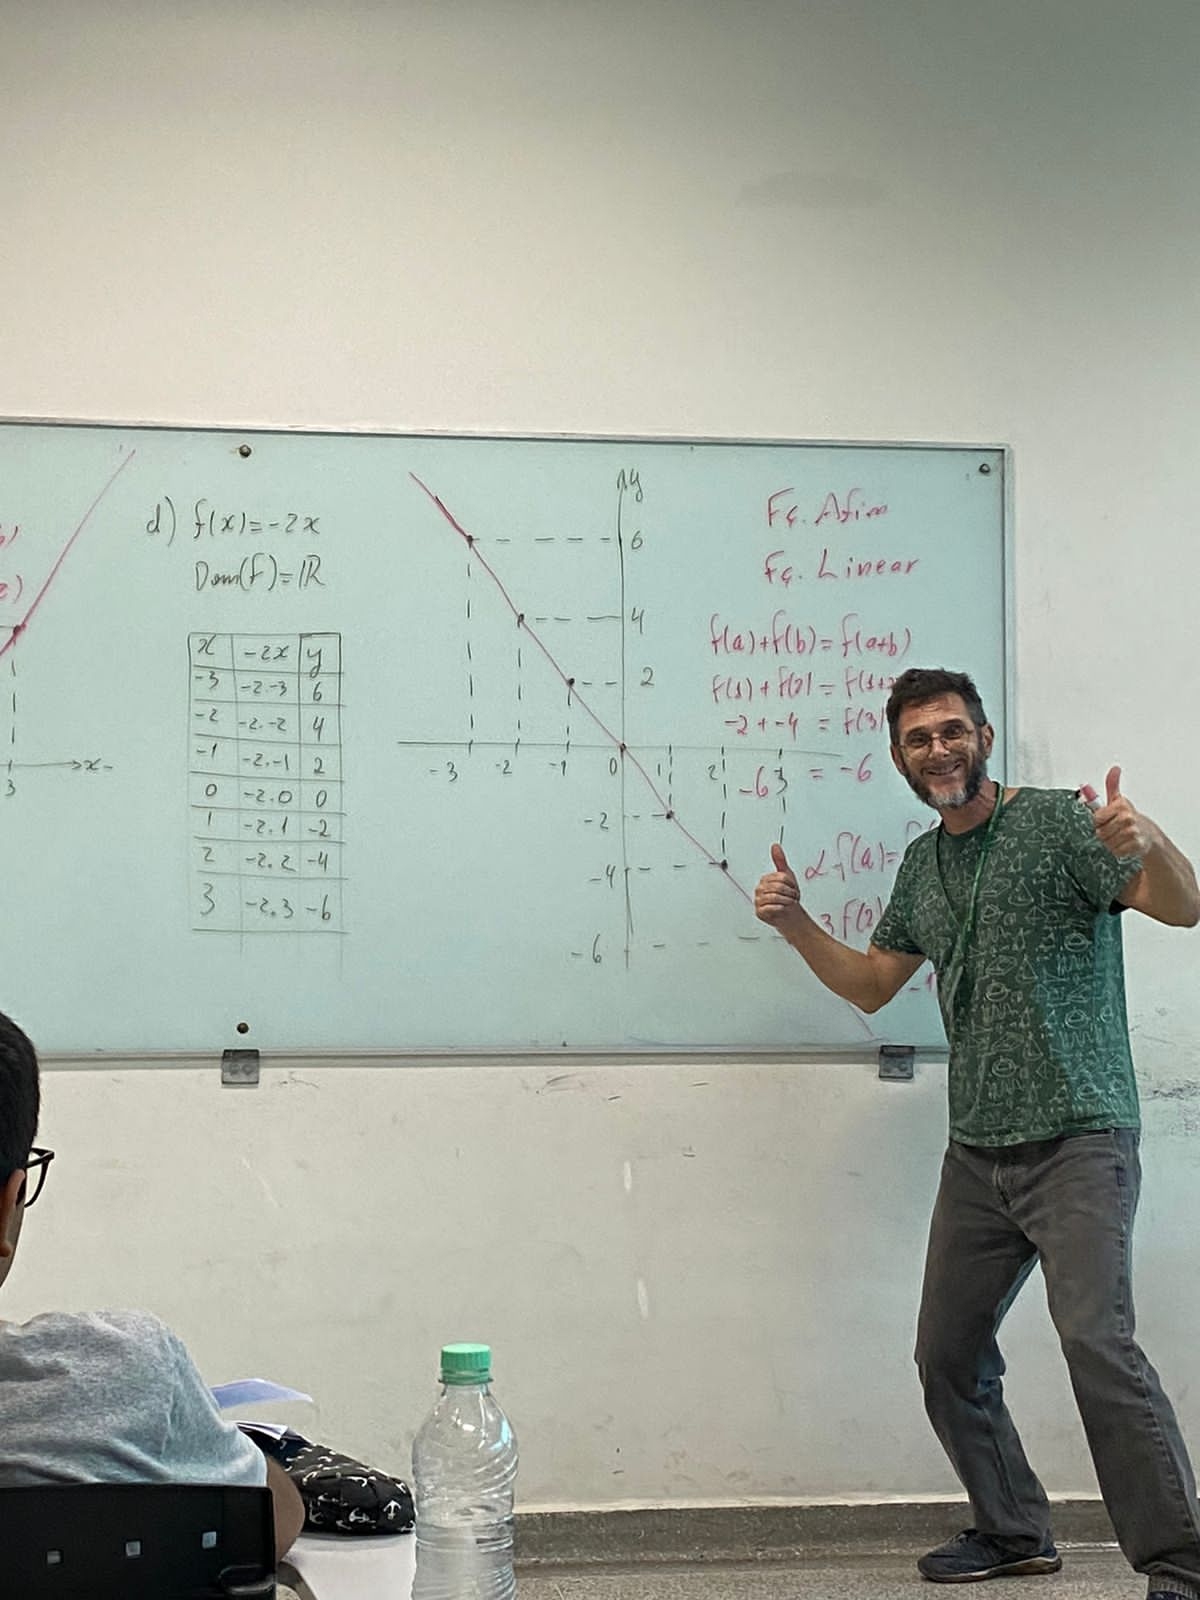 3
x
d) f(x)=-2x
Dom(f)=ℝ
x -2x y
-3 -2.-3 6
-2 -2.-2 4
-1 -2.-1 2
0 -2.0 0
1 -2.1 -2
2 -2.2 -4
3 -2.3 -6
y
6
4
2
-3 -2 -1 0 1 2 3
-2
-4
-6
Fç. Afim
Fç. Linear
f(a)+f(b)=f(a+b)
f(1)+f(2)=f(1+2
-2+-4 = f(3)
-6 = -6
αf(a)=
3f(2)